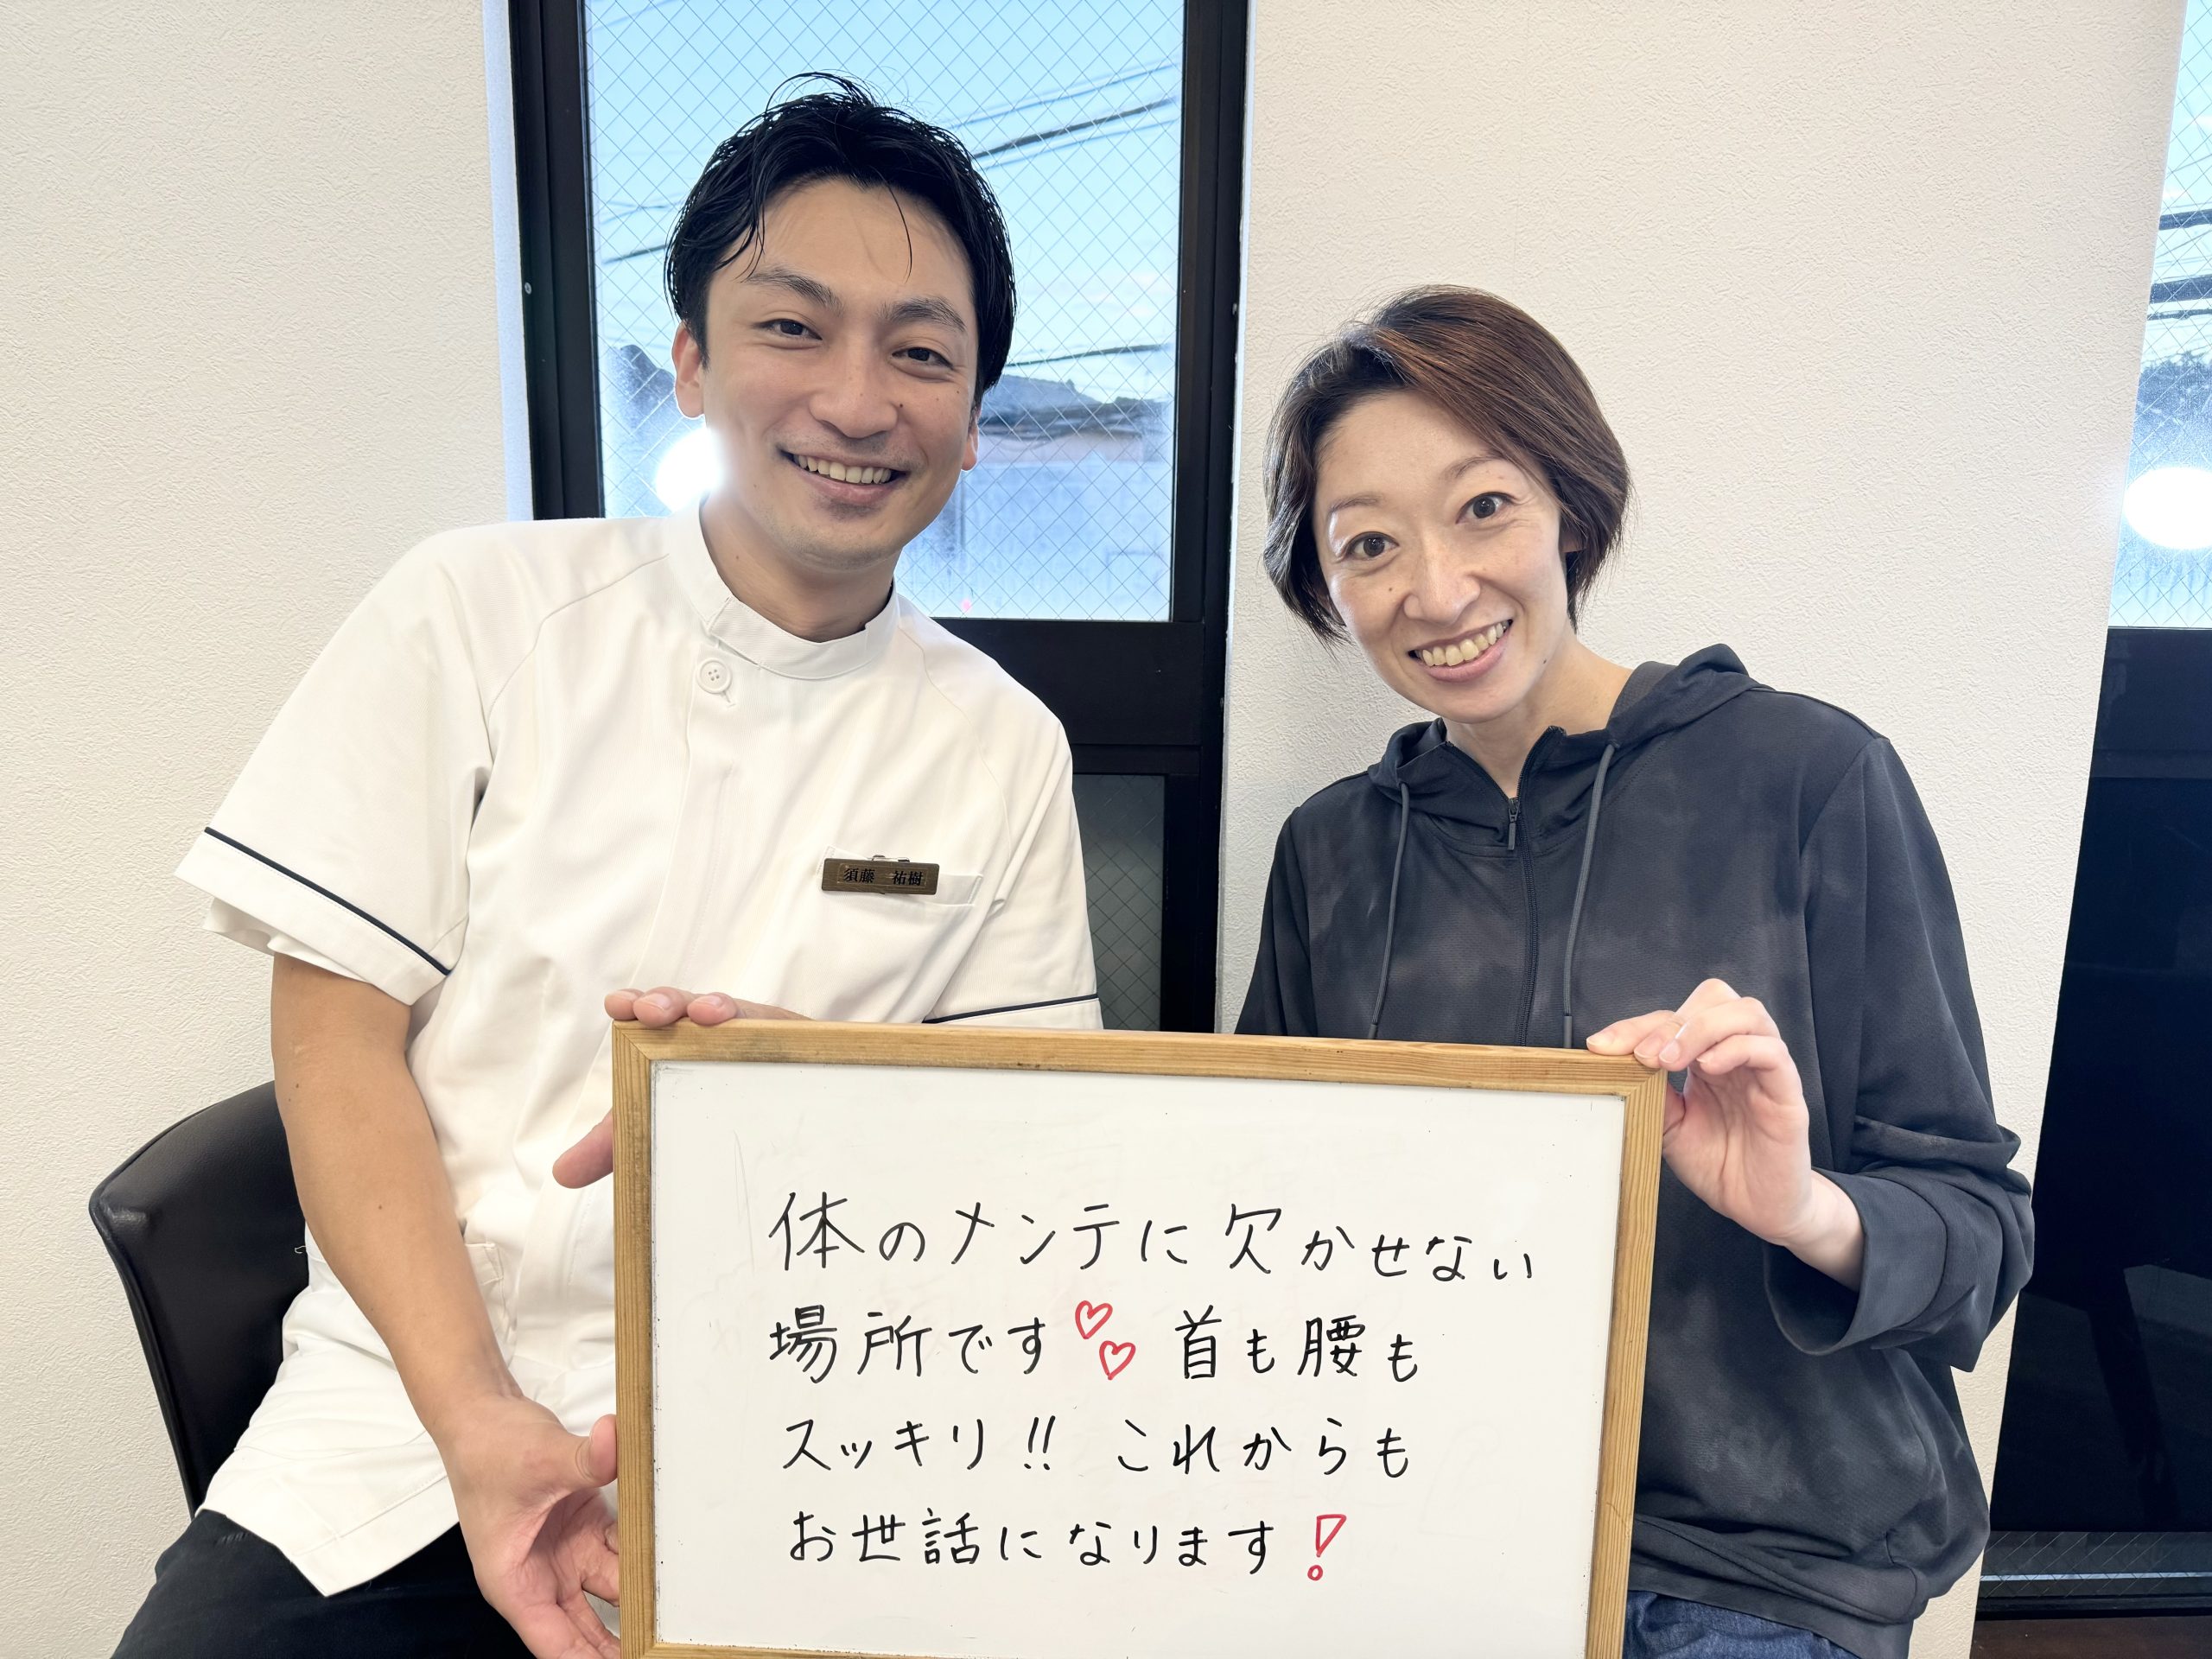 須藤 祐樹
体のメンテに欠かせない
場所です♡♡ 首も腰も
スッキリ!! これからも
お世話になります!